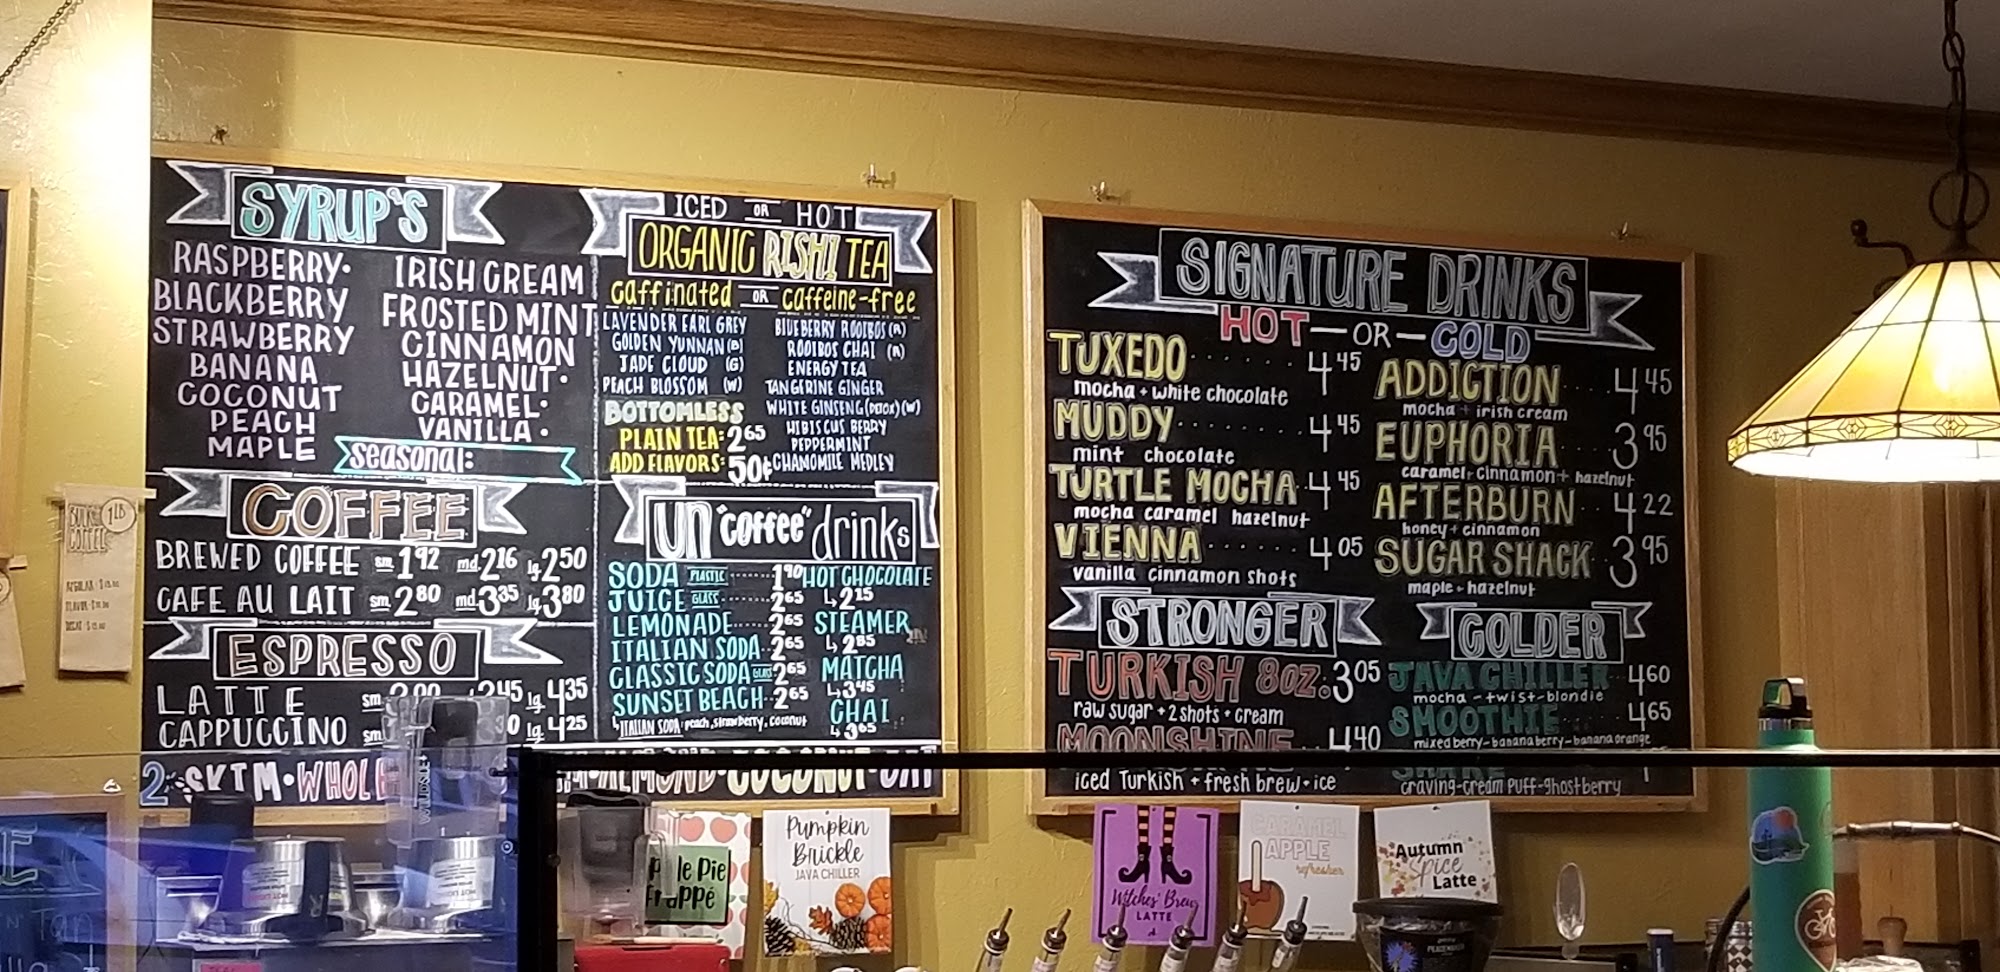 SYRUP'S
RASPBERRY•
BLACKBERRY
STRAWBERRY
BANANA
COCONUT
PEACH
MAPLE
IRISH CREAM
FROSTED MINT
CINNAMON
HAZELNUT•
CARAMEL•
VANILLA•
seasonal:
COFFEE
BREWED COFFEE sm. 1.92 md. 2.16 lg. 2.50
CAFE AU LAIT sm. 2.80 md. 3.35 lg. 3.80
ESPRESSO
LATTE sm. lg. 4.35
CAPPUCCINO sm. lg. 4.25
2%•SKIM•WHOLE
ALMOND•COCONUT•OAT
ICED OR HOT
ORGANIC RISHI TEA
caffinated OR caffeine-free
LAVENDER EARL GREY
GOLDEN YUNNAN (B)
JADE CLOUD (G)
PEACH BLOSSOM (W)
BOTTOMLESS
PLAIN TEA: 2.65
ADD FLAVORS: 50¢
BLUEBERRY ROOIBOS (R)
ROOIBOS CHAI (R)
ENERGY TEA
TANGERINE GINGER
WHITE GINSENG (DETOX) (W)
HIBISCUS BERRY
PEPPERMINT
CHAMOMILE MEDLEY
UN "coffee" drinks
SODA PLASTIC 1.90
JUICE GLASS 2.65
LEMONADE 2.65
ITALIAN SODA 2.65
CLASSIC SODA GLASS 2.65
SUNSET BEACH 2.65
↳ITALIAN SODA: peach, strawberry, coconut
HOT CHOCOLATE
↳2.15
STEAMER
↳2.85
MATCHA
↳3.45
CHAI
↳3.65
SIGNATURE DRINKS
HOT—OR—COLD
TUXEDO 4.45
mocha + white chocolate
MUDDY 4.45
mint chocolate
TURTLE MOCHA 4.45
mocha caramel hazelnut
VIENNA 4.05
vanilla cinnamon shots
ADDICTION 4.45
mocha + irish cream
EUPHORIA 3.95
caramel + cinnamon + hazelnut
AFTERBURN 4.22
honey + cinnamon
SUGAR SHACK 3.95
maple + hazelnut
STRONGER
TURKISH 8oz. 3.05
raw sugar + 2 shots + cream
MOONSHINE 4.40
iced Turkish + fresh brew + ice
COLDER
JAVA CHILLER 4.60
mocha - twist - blondie
SMOOTHIE 4.65
mixed berry - bananaberry - banana orange
craving-cream puff-ghostberry
COFFEE
1LB
le Pie
Pumpkin
Brickle
JAVA CHILLER
Witches' Brew
LATTE
CARAMEL
APPLE
refresher
Autumn
Spice
Latte